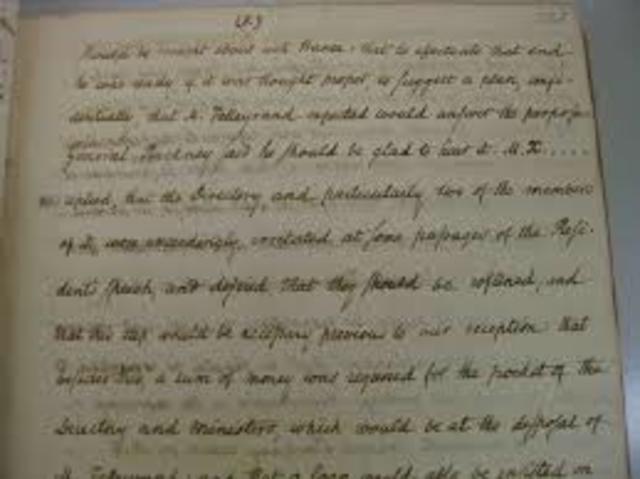 (2.)
should be brought about with France. that to effectuate that end,
he was ready if it was thought proper, to suggest a plan, confi-
dentially, that M. Talleyrand expected would answer the purpose
General Pinckney said he should be glad to hear it. M. X....
replied, that the Directory, and particularly two of the members
of it, were exceedingly irritated at some passages of the Presi-
dent's speech, and desired that they should be softened, and
that this step would be necessary previous to our reception that
besides this, a sum of money was required for the pocket of the
Directory and ministers, which would be at the disposal of
M. Talleyrand; and that a loan would also be insisted on